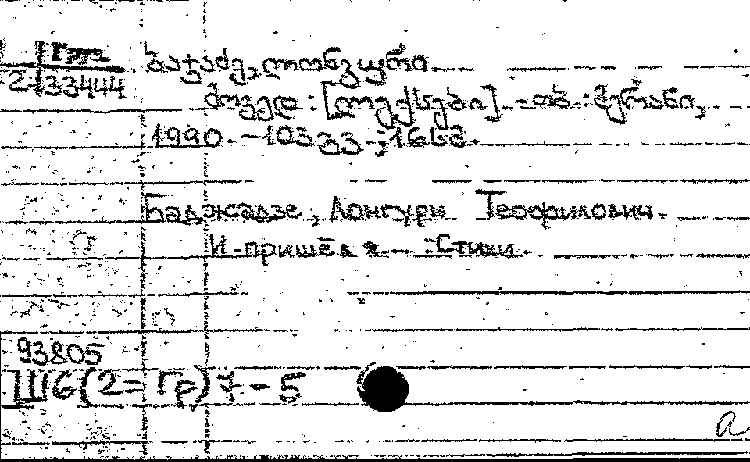 Груз
2-33444
ბაჯაძე, ლონგური.
მოველ : [ლექსები]. - თბ. : მერანი,
1990. - 103 გვ.; 16სმ.
Баджадзе, Лонгури Теофилович.
И пришёл я — : Стихи.
93805
Ш6(2=Гр)7-5
а